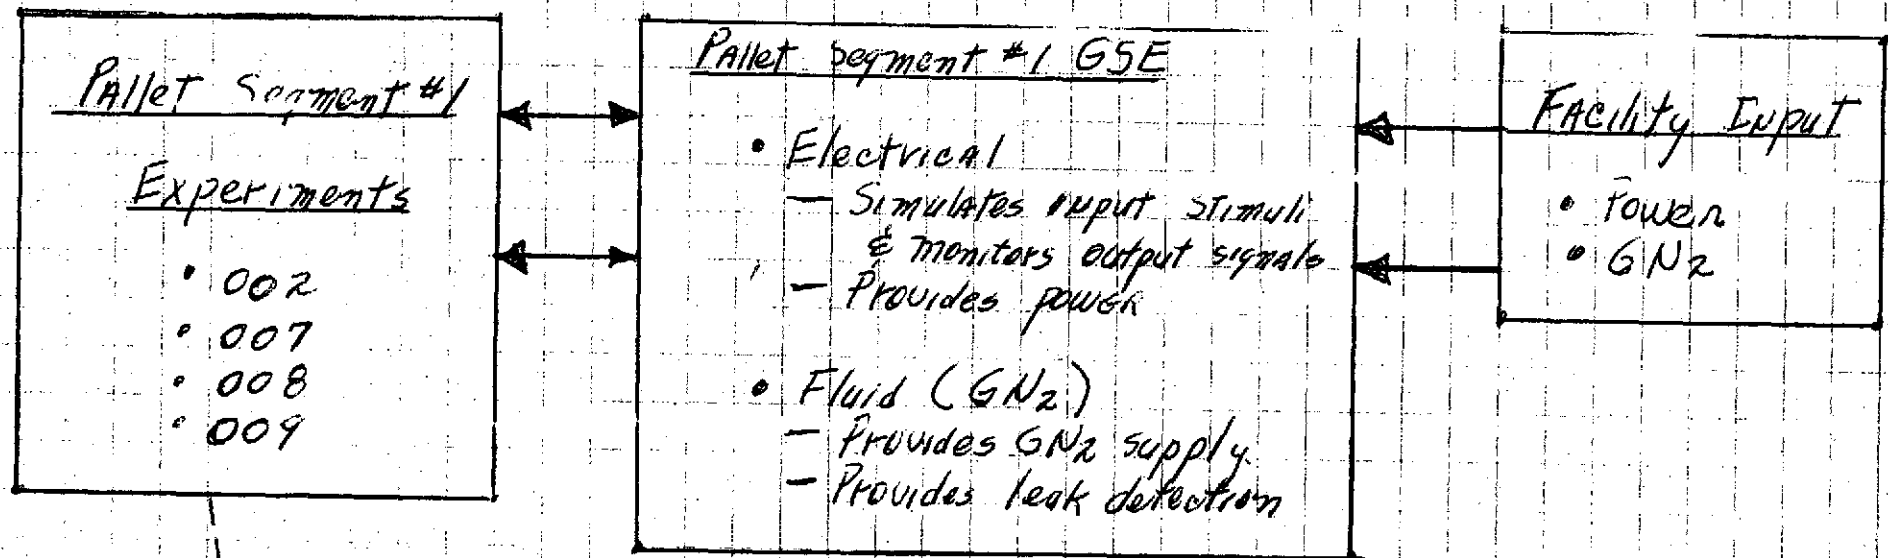 Pallet Segment #1
Experiments
• 002
• 007
• 008
• 009
Pallet Segment #1 GSE
• Electrical
— Simulates input stimuli
& monitors output signals
— Provides power
• Fluid (GN2)
— Provides GN2 supply.
— Provides leak detection
Facility Input
• Power
• GN2